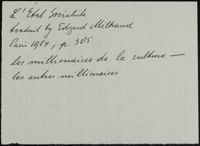 L'Etat Socialiste
traduit by Edgard Milhaud
Paris 1904, p. 305
les millionaires de la culture —
les autres millionaires